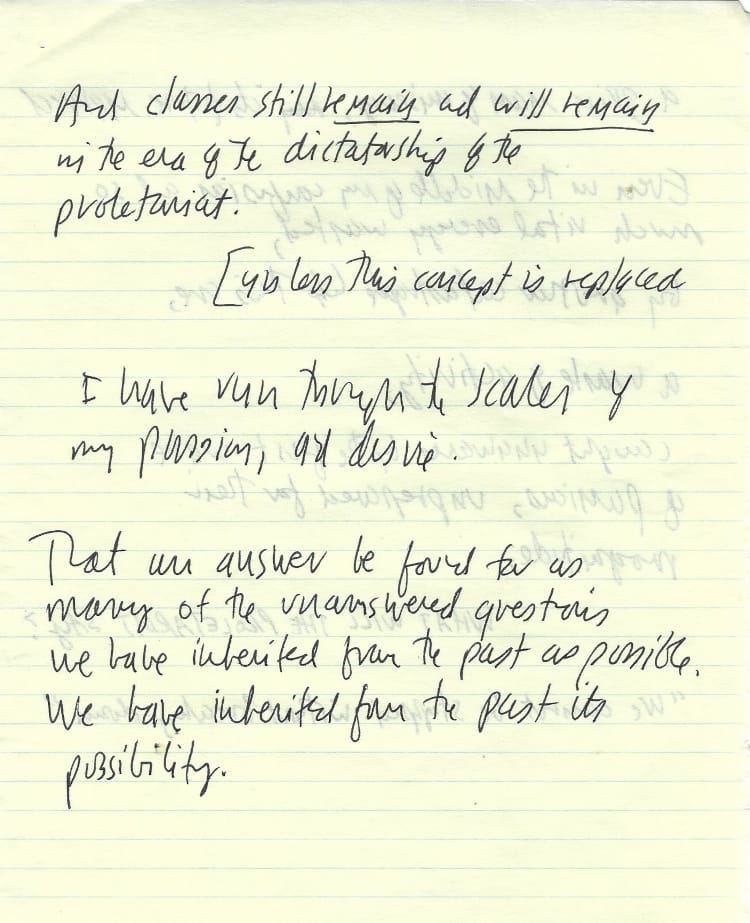 And classes still remain and will remain
in the era of the dictatorship of the
proletariat.
[unless this concept is replaced
I have run through the scales of
my passion, and desire.
That an answer be found for as
many of the unanswered questions
we have inherited from the past as possible.
We have inherited from the past its
possibility.